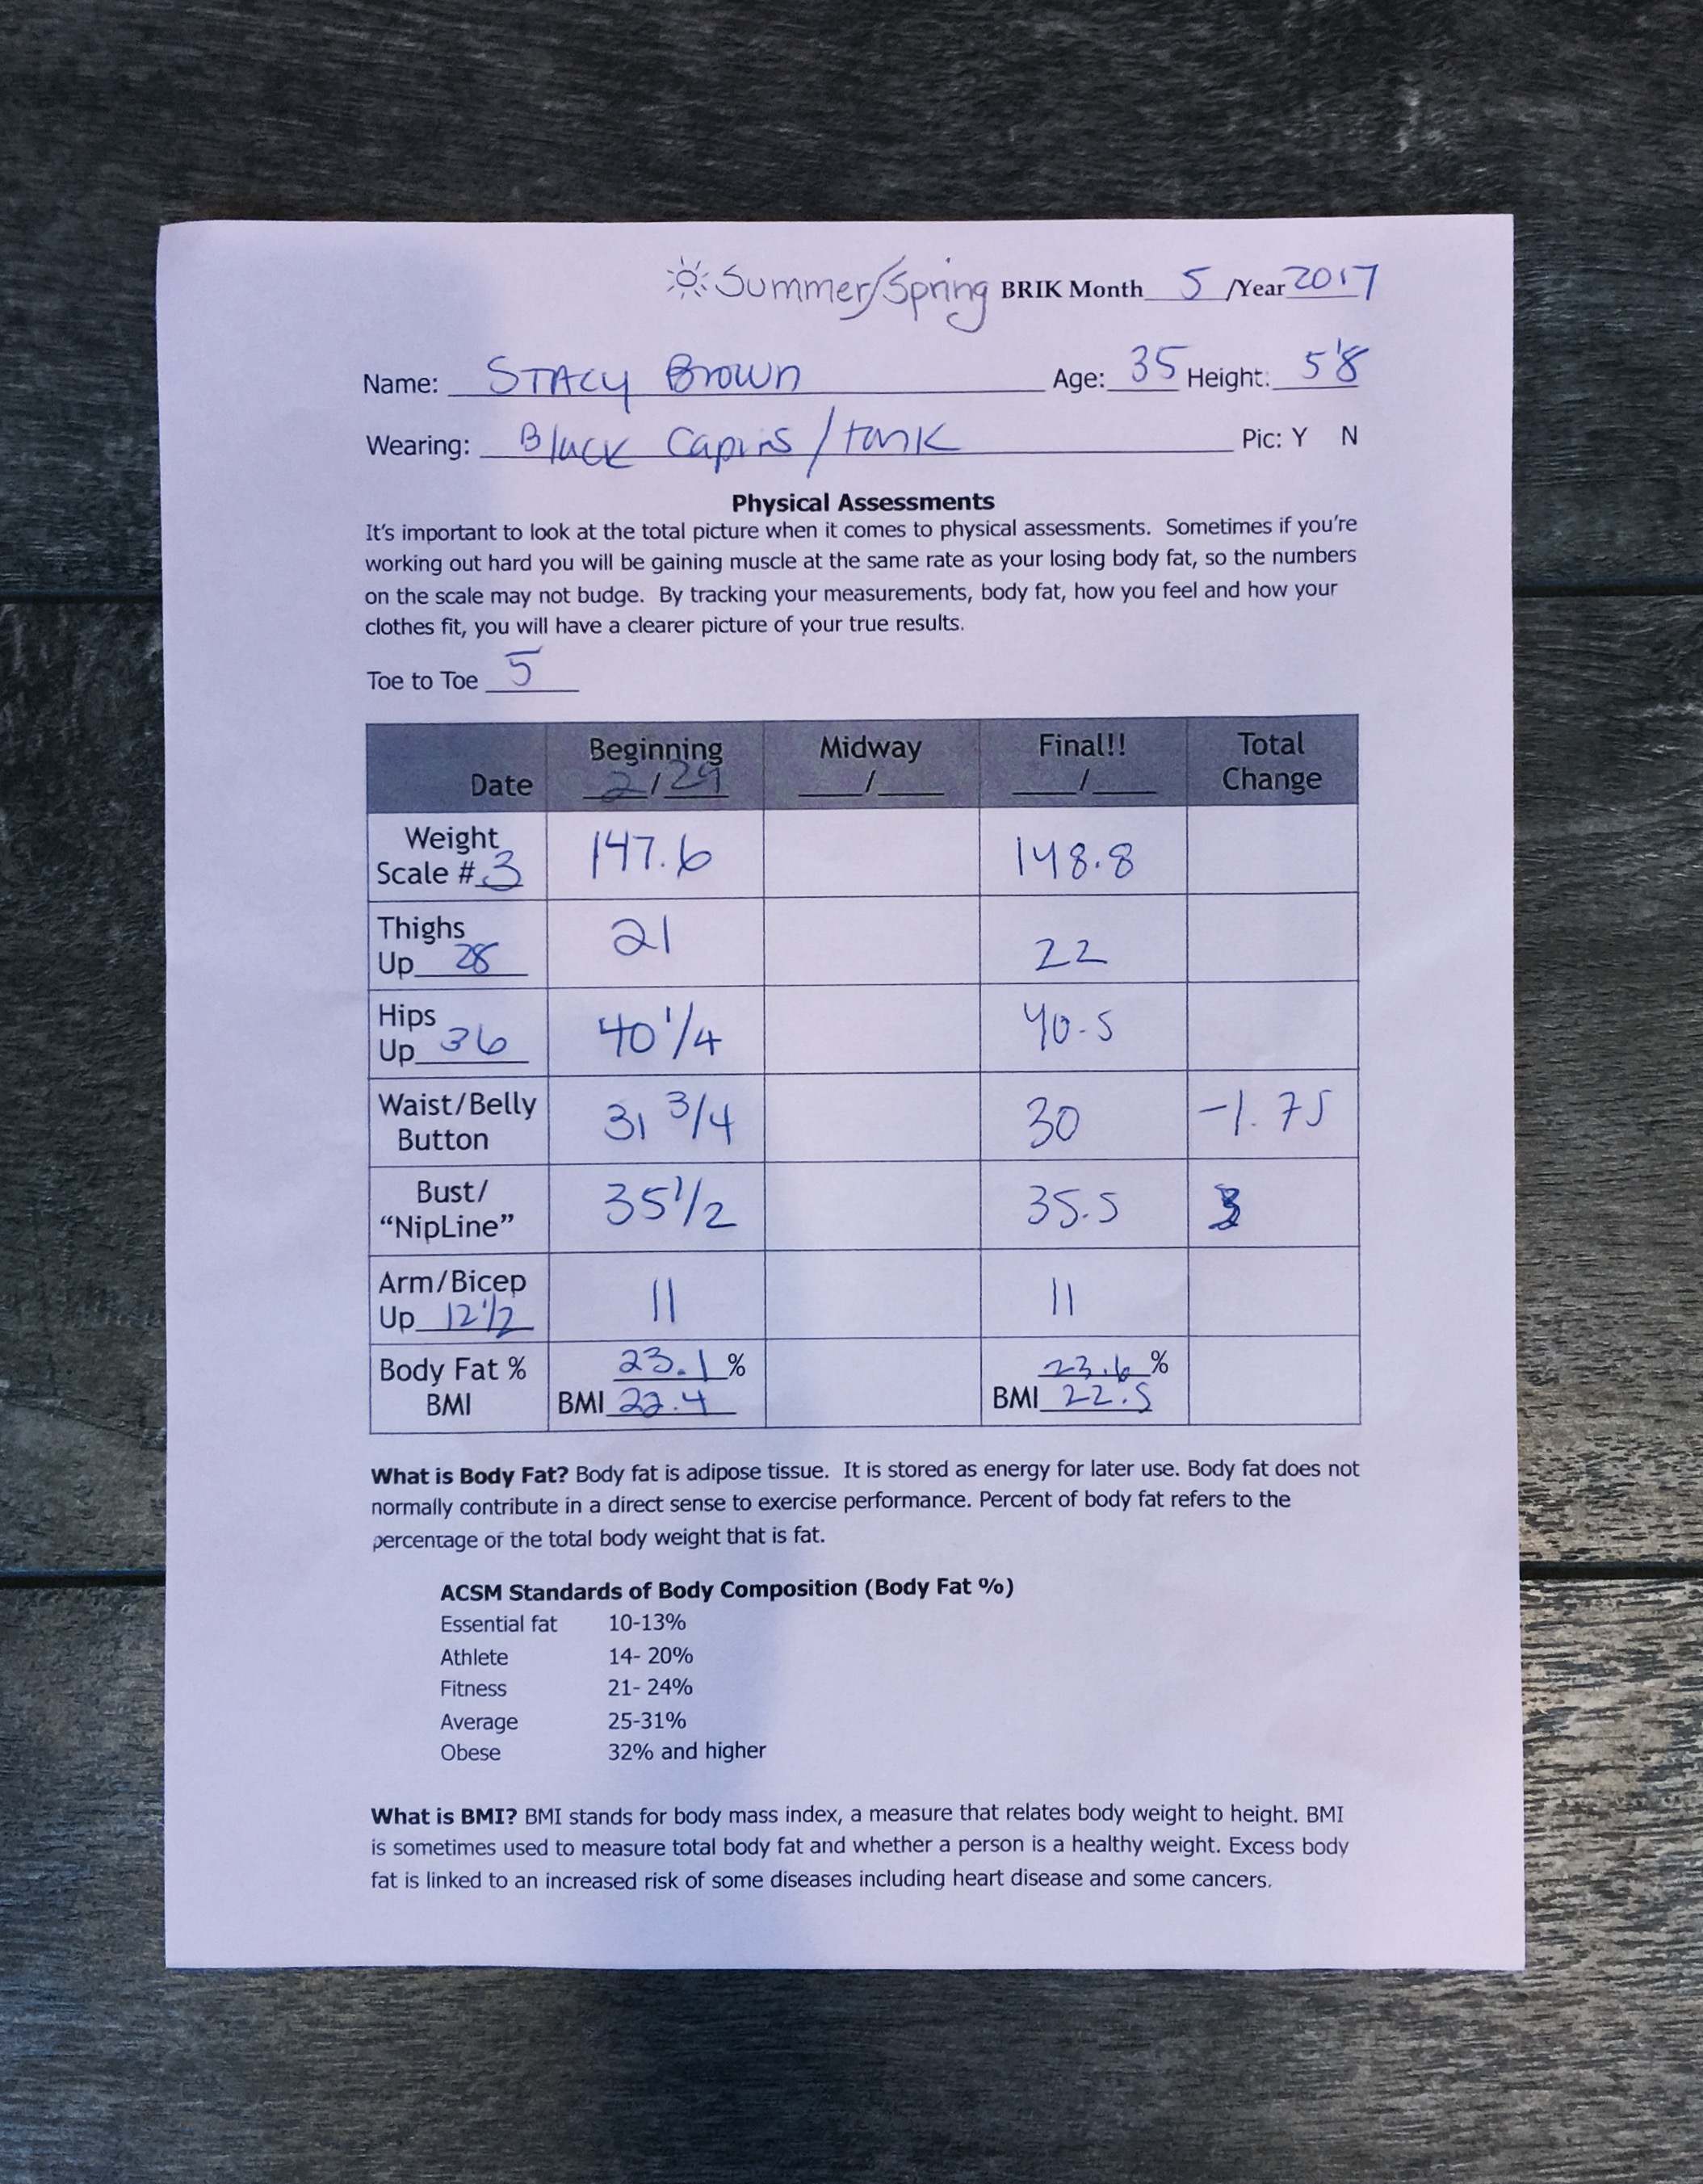 Summer/Spring BRIK Month 5 /Year 2017
Name: STACY Brown Age: 35 Height: 5'8
Wearing: Black Capris/tank Pic: Y N
Physical Assessments
It's important to look at the total picture when it comes to physical assessments. Sometimes if you're
working out hard you will be gaining muscle at the same rate as your losing body fat, so the numbers
on the scale may not budge. By tracking your measurements, body fat, how you feel and how your
clothes fit, you will have a clearer picture of your true results.
Toe to Toe 5
Beginning Midway Final!! Total
Date 2/29 / / Change
Weight
Scale # 3 147.6 148.8
Thighs
Up 28 21 22
Hips
Up 36 40 1/4 40.5
Waist/Belly
Button 31 3/4 30 -1.75
Bust/
"NipLine" 35 1/2 35.5
Arm/Bicep
Up 12 1/2 11 11
Body Fat % 23.1 % 23.6 %
BMI BMI 22.4 BMI 22.5
What is Body Fat? Body fat is adipose tissue. It is stored as energy for later use. Body fat does not
normally contribute in a direct sense to exercise performance. Percent of body fat refers to the
percentage of the total body weight that is fat.
ACSM Standards of Body Composition (Body Fat %)
Essential fat 10-13%
Athlete 14- 20%
Fitness 21- 24%
Average 25-31%
Obese 32% and higher
What is BMI? BMI stands for body mass index, a measure that relates body weight to height. BMI
is sometimes used to measure total body fat and whether a person is a healthy weight. Excess body
fat is linked to an increased risk of some diseases including heart disease and some cancers.